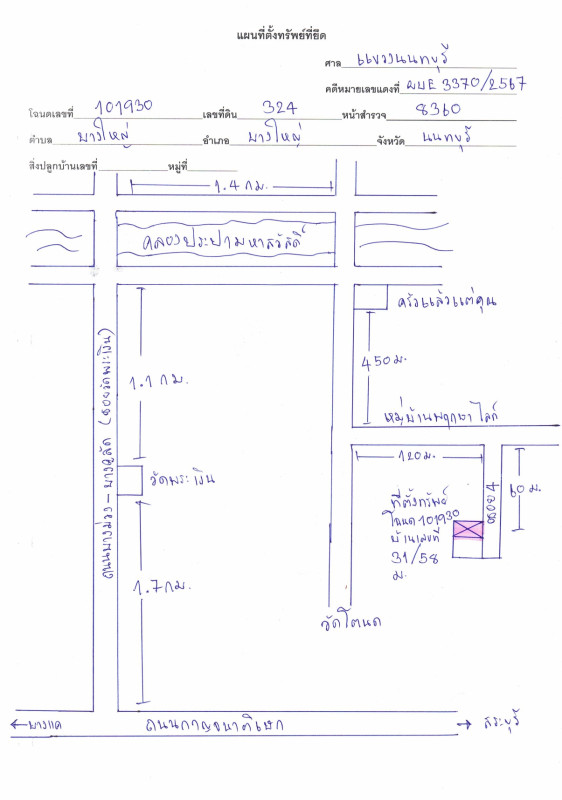 แผนที่ตั้งทรัพย์ที่ยึด
ศาล แขวงนนทบุรี
คดีหมายเลขแดงที่ ผบE 3370/2567
โฉนดเลขที่ 101930 เลขที่ดิน 324 หน้าสำรวจ 8360
ตำบล บางใหญ่ อำเภอ บางใหญ่ จังหวัด นนทบุรี
สิ่งปลูกบ้านเลขที่ หมู่ที่
1.4 กม.
คลองประปามหาสวัสดิ์
ครัวแล้วแต่คุณ
450 ม.
ถนนบางม่วง - บางคูลัด (ซอยวัดพระเงิน)
1.1 กม.
หมู่บ้านพฤกษาไลก์
120 ม.
60 ม.
ซอย 4
วัดพระเงิน
ที่ตั้งทรัพย์
โฉนด 101930
บ้านเลขที่
31/58
ม.
1.7 กม.
วัดโตนด
บางแค
ถนนกาญจนาภิเษก
สระบุรี